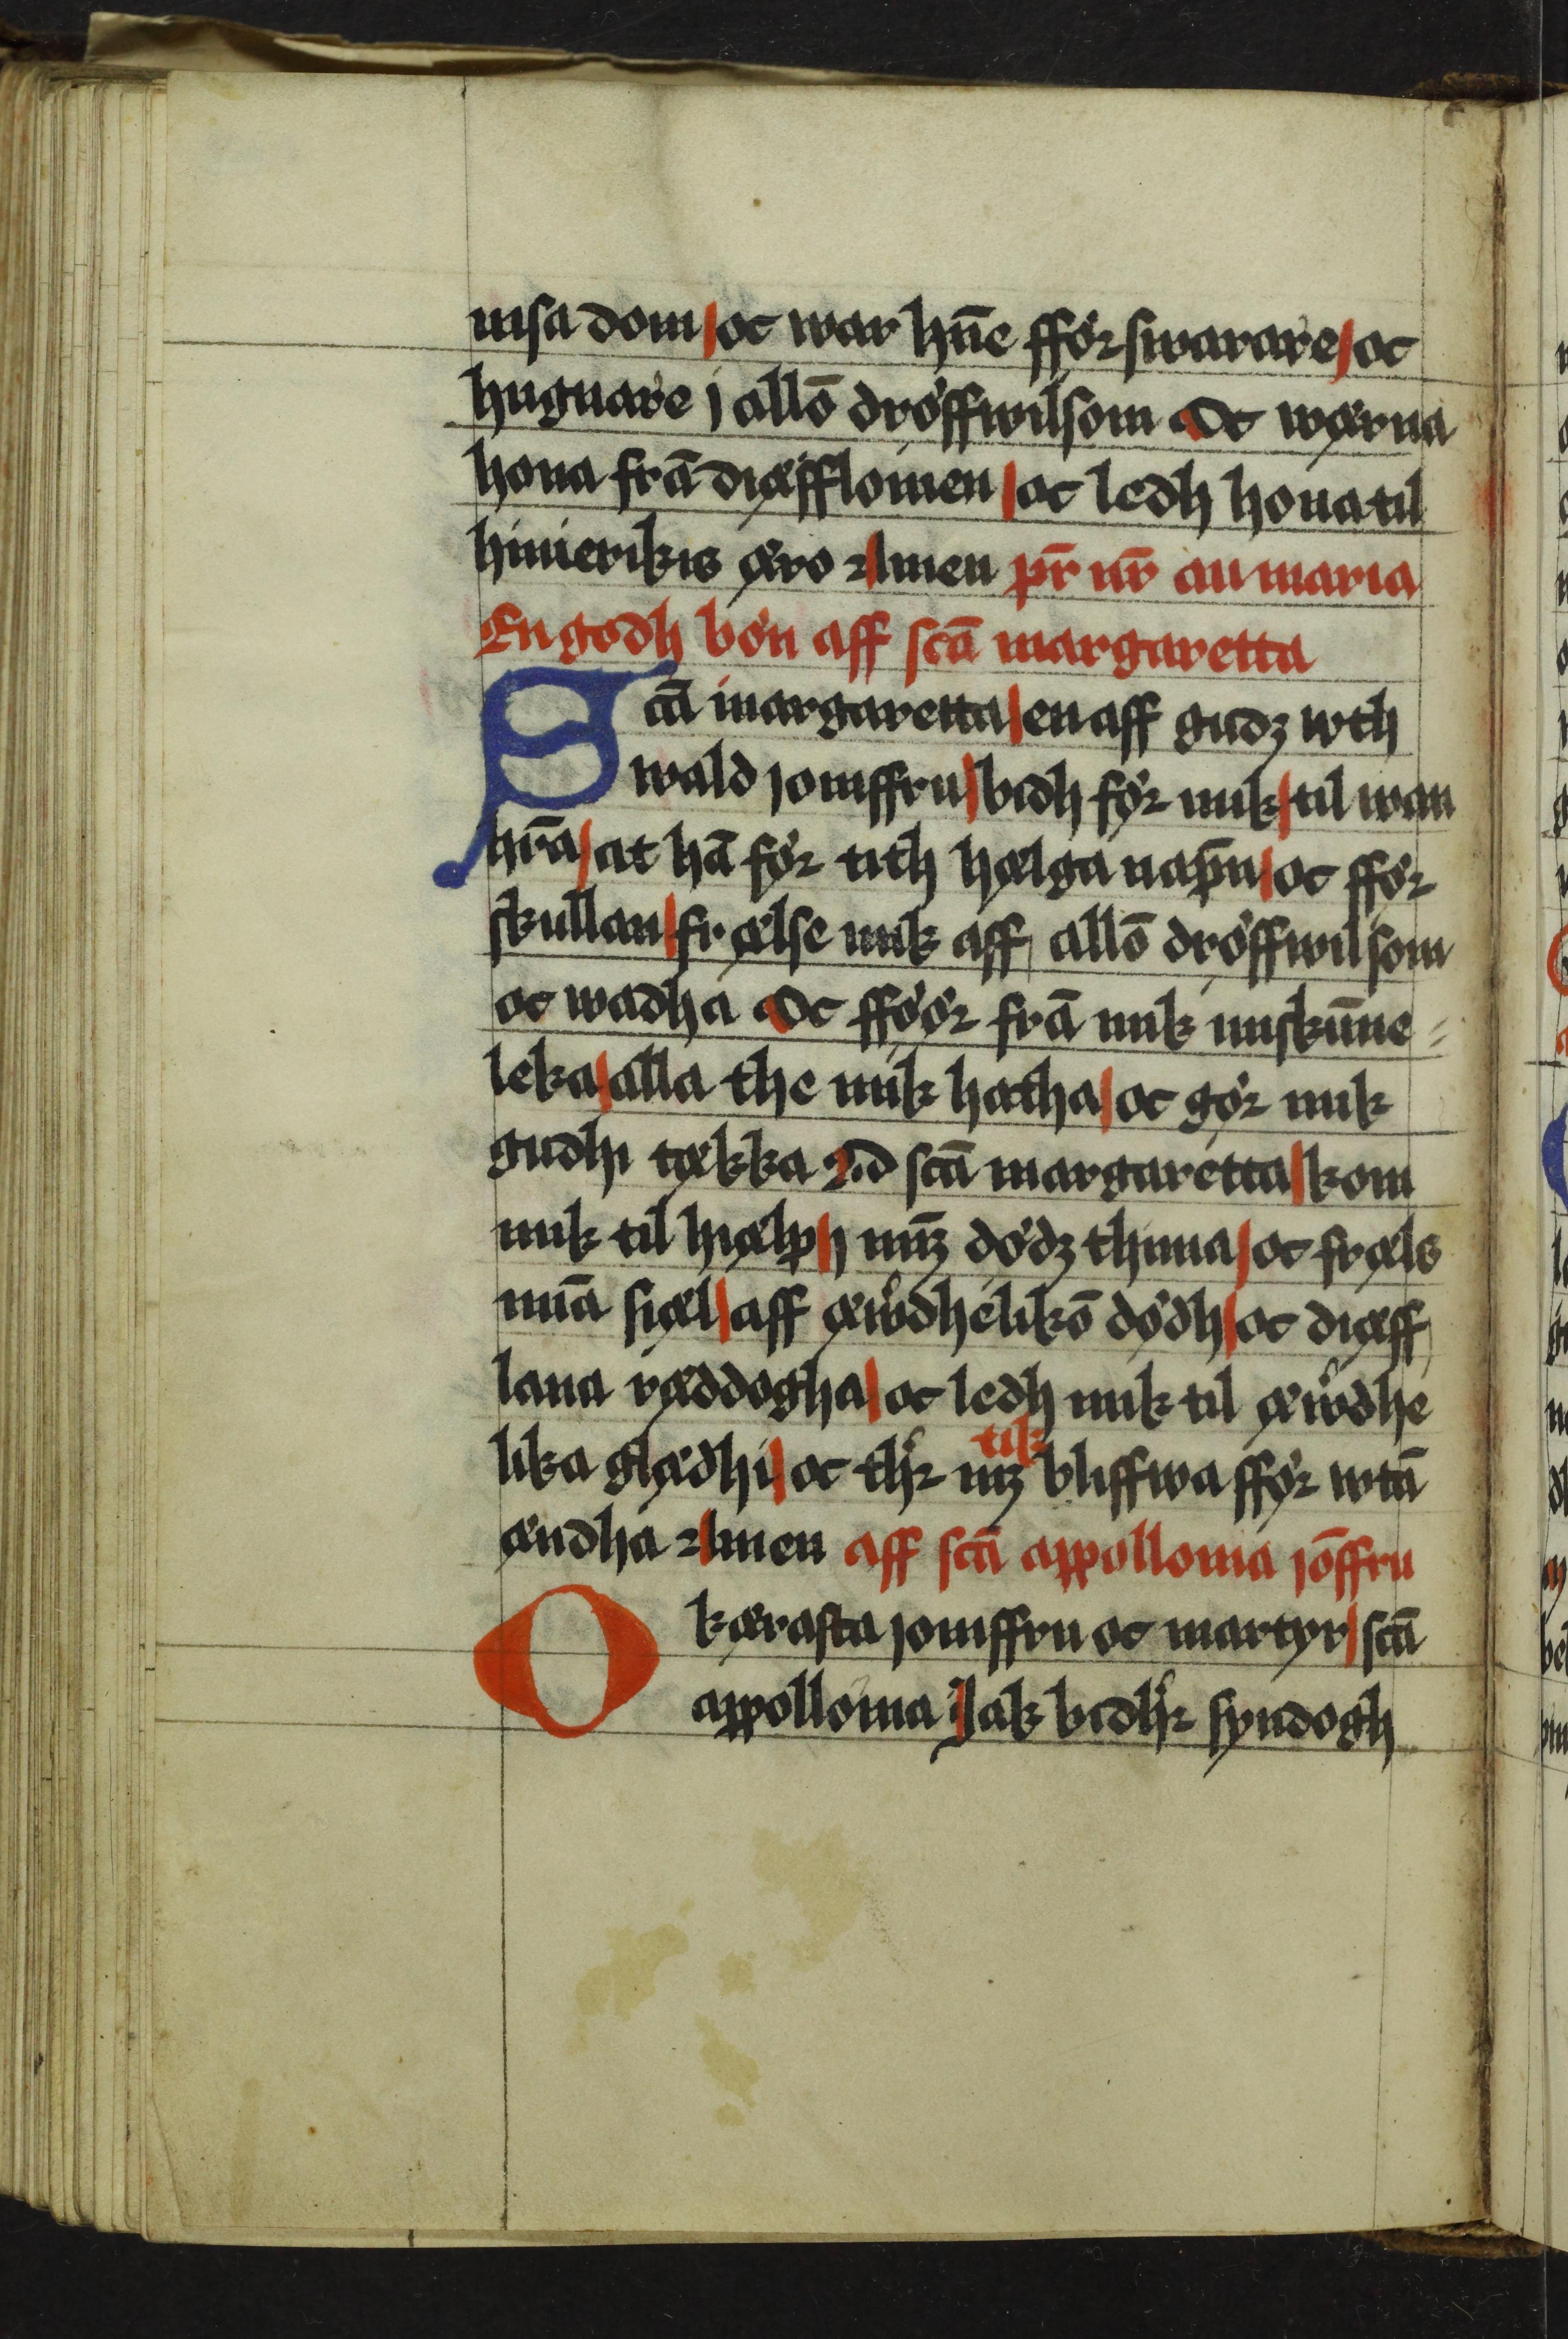 uisa dom | oc war hn̄e fför swarare | oc
hugnare j allō dröffwilsom Oc wærna
hona frā diæfflomen | oc ledh hona til
himerikis æro Amen pr̄ nr̄ au maria
En godh bön aff scā margaretta
Scā margaretta | en aff gudz wth
wald jomffru | bidh för mik | til wan
hrā | at hā för tith hælga nāpn | oc ffor
skullan | frælse mik aff allō dröffwilsom
oc wadha Oc fföör frā mik miskūne
leka | alla the mik hatha | oc gör mik
gudhi tækka O scā margaretta | kom
mik til hiælp | j mz dödz thima | oc fræls
mīa siæl | aff æwdhelikō dödh | oc diæff
lana ræddogha | oc ledh mik til æwdhe
lika glædhi | oc thr mz tik bliffwa ffør wtā
ændha Amen aff scā appollonia jōffru
O kærasta jomffru oc martyr | scā
appollonia Jak bidhr syndogh